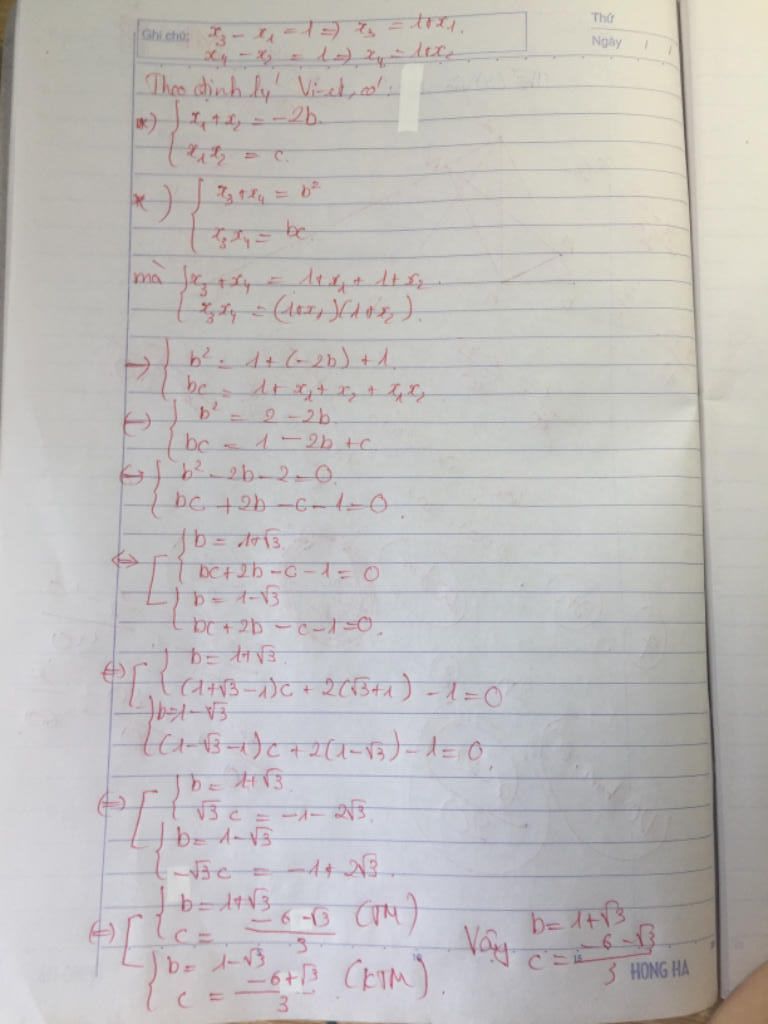 Ghi chú: x₃ - x₁ = 1 ⇒ x₃ = 1+x₁.
Thứ
x₄ - x₂ = 1 ⇒ x₄ = 1+x₂
Ngày / /
Theo định lý Vi-et, có:
*) { x₁+x₂ = -2b.
x₁x₂ = c.
*) { x₃+x₄ = b²
x₃x₄ = bc.
mà { x₃+x₄ = 1+x₁ + 1+x₂
x₃x₄ = (1+x₁)(1+x₂).
→ { b² = 1+(-2b)+1.
bc = 1+ x₁+ x₂ + x₁x₂
↔ { b² = 2 - 2b.
bc = 1 - 2b + c.
↔ { b² - 2b - 2 = 0.
bc + 2b - c - 1 = 0.
↔ [ { b = 1+√3.
bc + 2b - c - 1 = 0
{ b = 1-√3
bc + 2b - c - 1 = 0.
⇔ [ { b = 1+√3.
(1+√3-1)c + 2(√3+1) - 1 = 0
{ b = 1-√3
(1-√3-1)c + 2(1-√3) - 1 = 0.
⇔ [ { b = 1+√3.
√3 c = -1 - 2√3.
{ b = 1-√3
-√3c = -1 + 2√3.
⇔ [ { b = 1+√3 (TM)
c = (-6-√3)/3
{ b = 1-√3 (KTM).
c = (-6+√3)/3
Vậy b = 1+√3
c = (-6-√3)/3
HONG HA